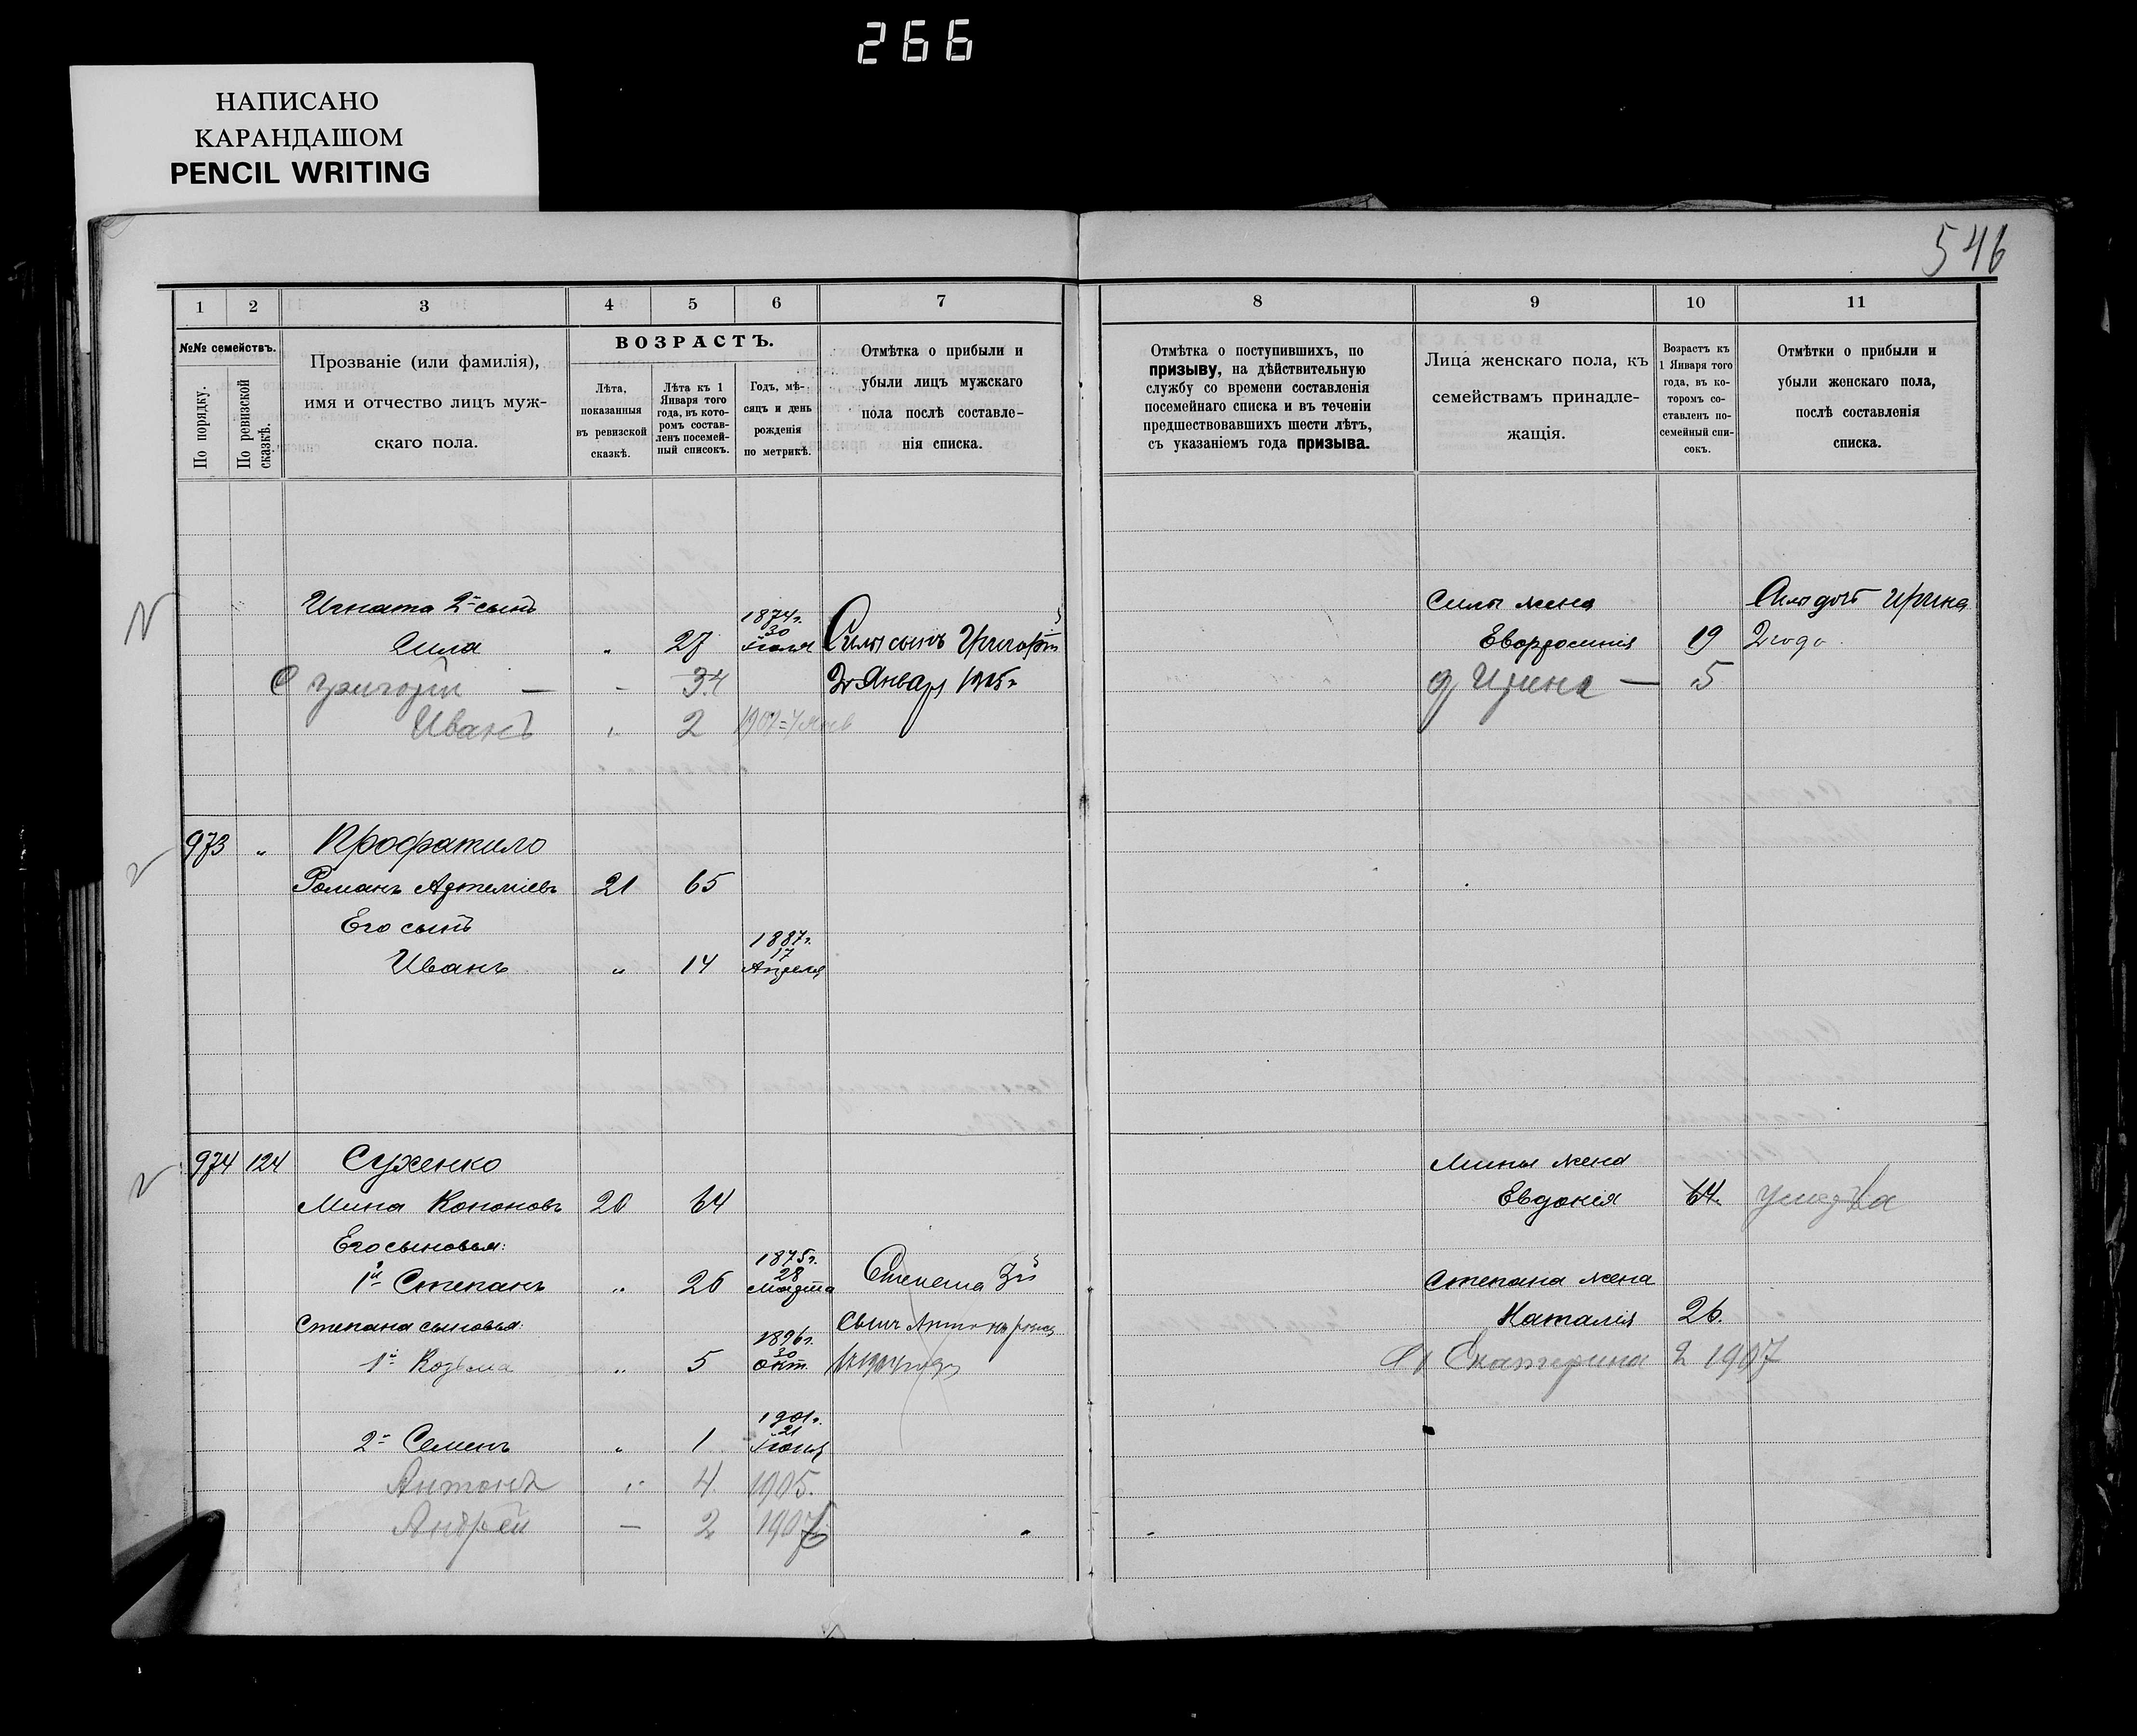 266
НАПИСАНО
КАРАНДАШОМ
PENCIL WRITING
546
1 2 3 4 5 6 7 8 9 10 11
№№ семействъ.
По порядку.
По ревизской сказкѣ.
Прозваніе (или фамилія),
имя и отчество лицъ муж-
скаго пола.
ВОЗРАСТЪ.
Лѣта,
показанныя
въ ревизской
сказкѣ.
Лѣта къ 1
Января того
года, въ кото-
ромъ состав-
ленъ посемей-
ный списокъ.
Годъ, мѣ-
сяцъ и день
рожденія
по метрикѣ.
Отмѣтка о прибыли и
убыли лицъ мужскаго
пола послѣ составле-
нія списка.
Отмѣтка о поступившихъ, по
призыву, на дѣйствительную
службу со времени составленія
посемейнаго списка и въ теченіи
предшествовавшихъ шести лѣтъ,
съ указаніемъ года призыва.
Лица женскаго пола, къ
семействамъ принадле-
жащія.
Возрастъ къ
1 Января того
года, въ ко-
торомъ со-
ставленъ по-
семейный спи-
сокъ.
Отмѣтки о прибыли и
убыли женскаго пола,
послѣ составленія
списка.
Игната 2й сынъ 1874г. Силы жена Силы дочь Ирина
Сила „ 27 30 Іюля Силы сынъ Григорій Евфросинія 19 2 года
С Григорій — - 34 Января 1905г д Ирина — 5
Иванъ „ 2
973 „ Профатило
Романъ Артеміевъ 21 65
Его сынъ
1887г.
Иванъ „ 14 17 Апреля
974 124 Сухенко Мины жена
Мина Кононовъ 20 64 Евдокія 64.
Его сыновья: 1875г.
1й Степанъ „ 26 28 Марта Степана 3й Степана жена
Степана сыновья: сынъ Антонъ Наталія 26.
1896г.
1й Козьма „ 5 30 Окт. Екатерина 2 1907
1901г.
2й Семенъ „ 1 21 Іюня
Антонъ „ 4 1905.
Андрей — 2 1907